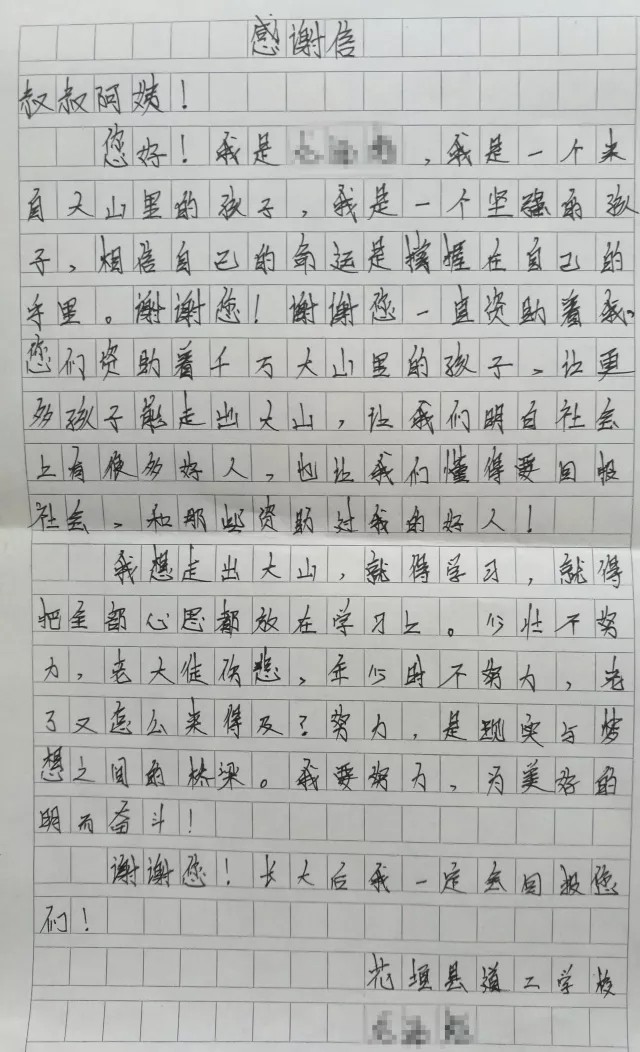 感谢信
叔叔阿姨！
您好！我是 ，我是一个来
自大山里的孩子，我是一个坚强的孩
子，相信自己的命运是掌握在自己的
手里。谢谢您！谢谢您一直资助着我。
您们资助着千万大山里的孩子、让更
多孩子能走出大山，让我们明白社会
上有很多好人，也让我们懂得要回报
社会、和那些资助过我的好人！
我想走出大山，就得学习，就得
把全部心思都放在学习上。少壮不努
力，老大徒伤悲，年少时不努力，老
了又怎么来得及？努力，是现实与梦
想之间的桥梁。我要努力，为美好的
明而奋斗！
谢谢您！长大后我一定会回报您
们！
花垣县道二学校